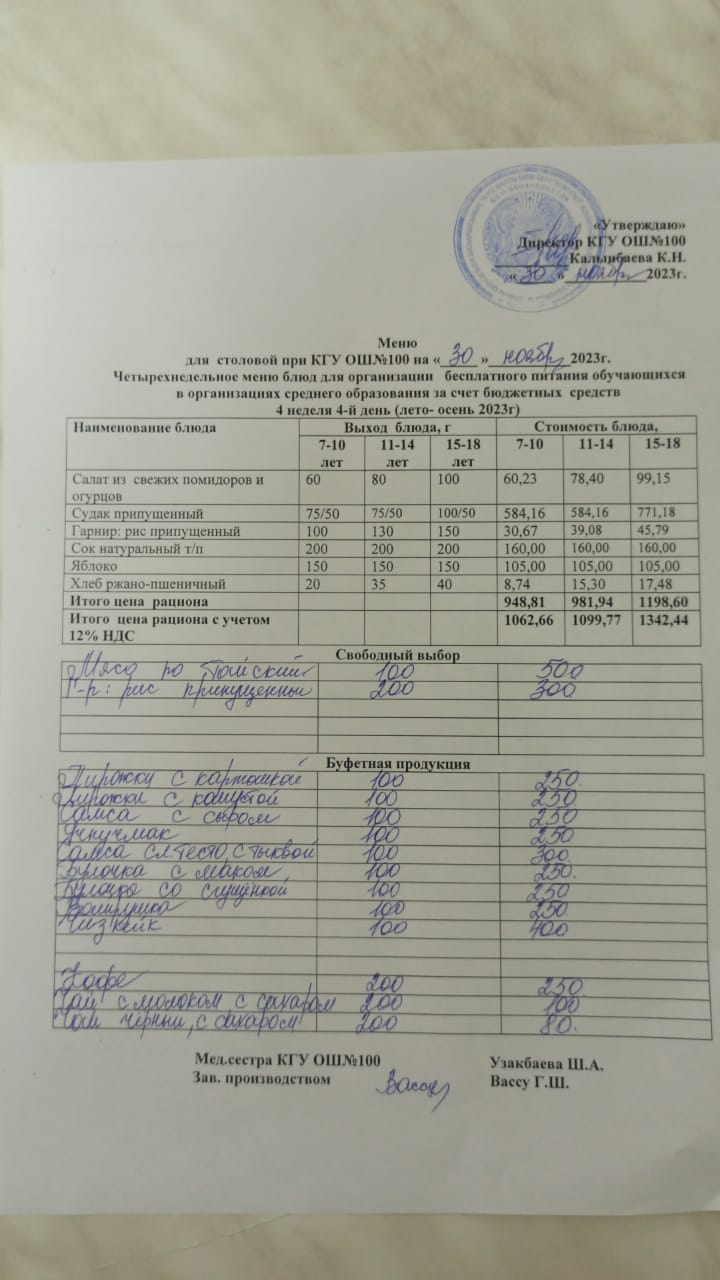 «Утверждаю»
Директор КГУ ОШ№100
Калыбаева К.Н.
« 30 » ноябрь 2023г.
Меню
для столовой при КГУ ОШ№100 на « 30 » ноябрь 2023г.
Четырехнедельное меню блюд для организации бесплатного питания обучающихся
в организациях среднего образования за счет бюджетных средств
4 неделя 4-й день (лето- осень 2023г)
Наименование блюда Выход блюда, г Стоимость блюда,
7-10 лет 11-14 лет 15-18 лет 7-10 11-14 15-18
Салат из свежих помидоров и огурцов 60 80 100 60,23 78,40 99,15
Судак припущенный 75/50 75/50 100/50 584,16 584,16 771,18
Гарнир: рис припущенный 100 130 150 30,67 39,08 45,79
Сок натуральный т/п 200 200 200 160,00 160,00 160,00
Яблоко 150 150 150 105,00 105,00 105,00
Хлеб ржано-пшеничный 20 35 40 8,74 15,30 17,48
Итого цена рациона 948,81 981,94 1198,60
Итого цена рациона с учетом 12% НДС 1062,66 1099,77 1342,44
Свободный выбор
Мясо по тайский 100 500
Г-р: рис припущенный 200 300
Буфетная продукция
Пирожки с картошкой 100 250
Пирожки с капустой 100 250
Самса с сыром 100 250
Учпучмак 100 250
Самса сл.тесто, с тыквой 100 300
Булочка с маком 100 250
Булочка со сгущенкой 100 250
Ватрушка 100 250
Чиз кейк 100 400
Кофе 200 250
Чай с молоком с сахаром 200 100
Чай черный, с сахаром 200 80
Мед.сестра КГУ ОШ№100 Узакбаева Ш.А.
Зав. производством Вассу Вассу Г.Ш.